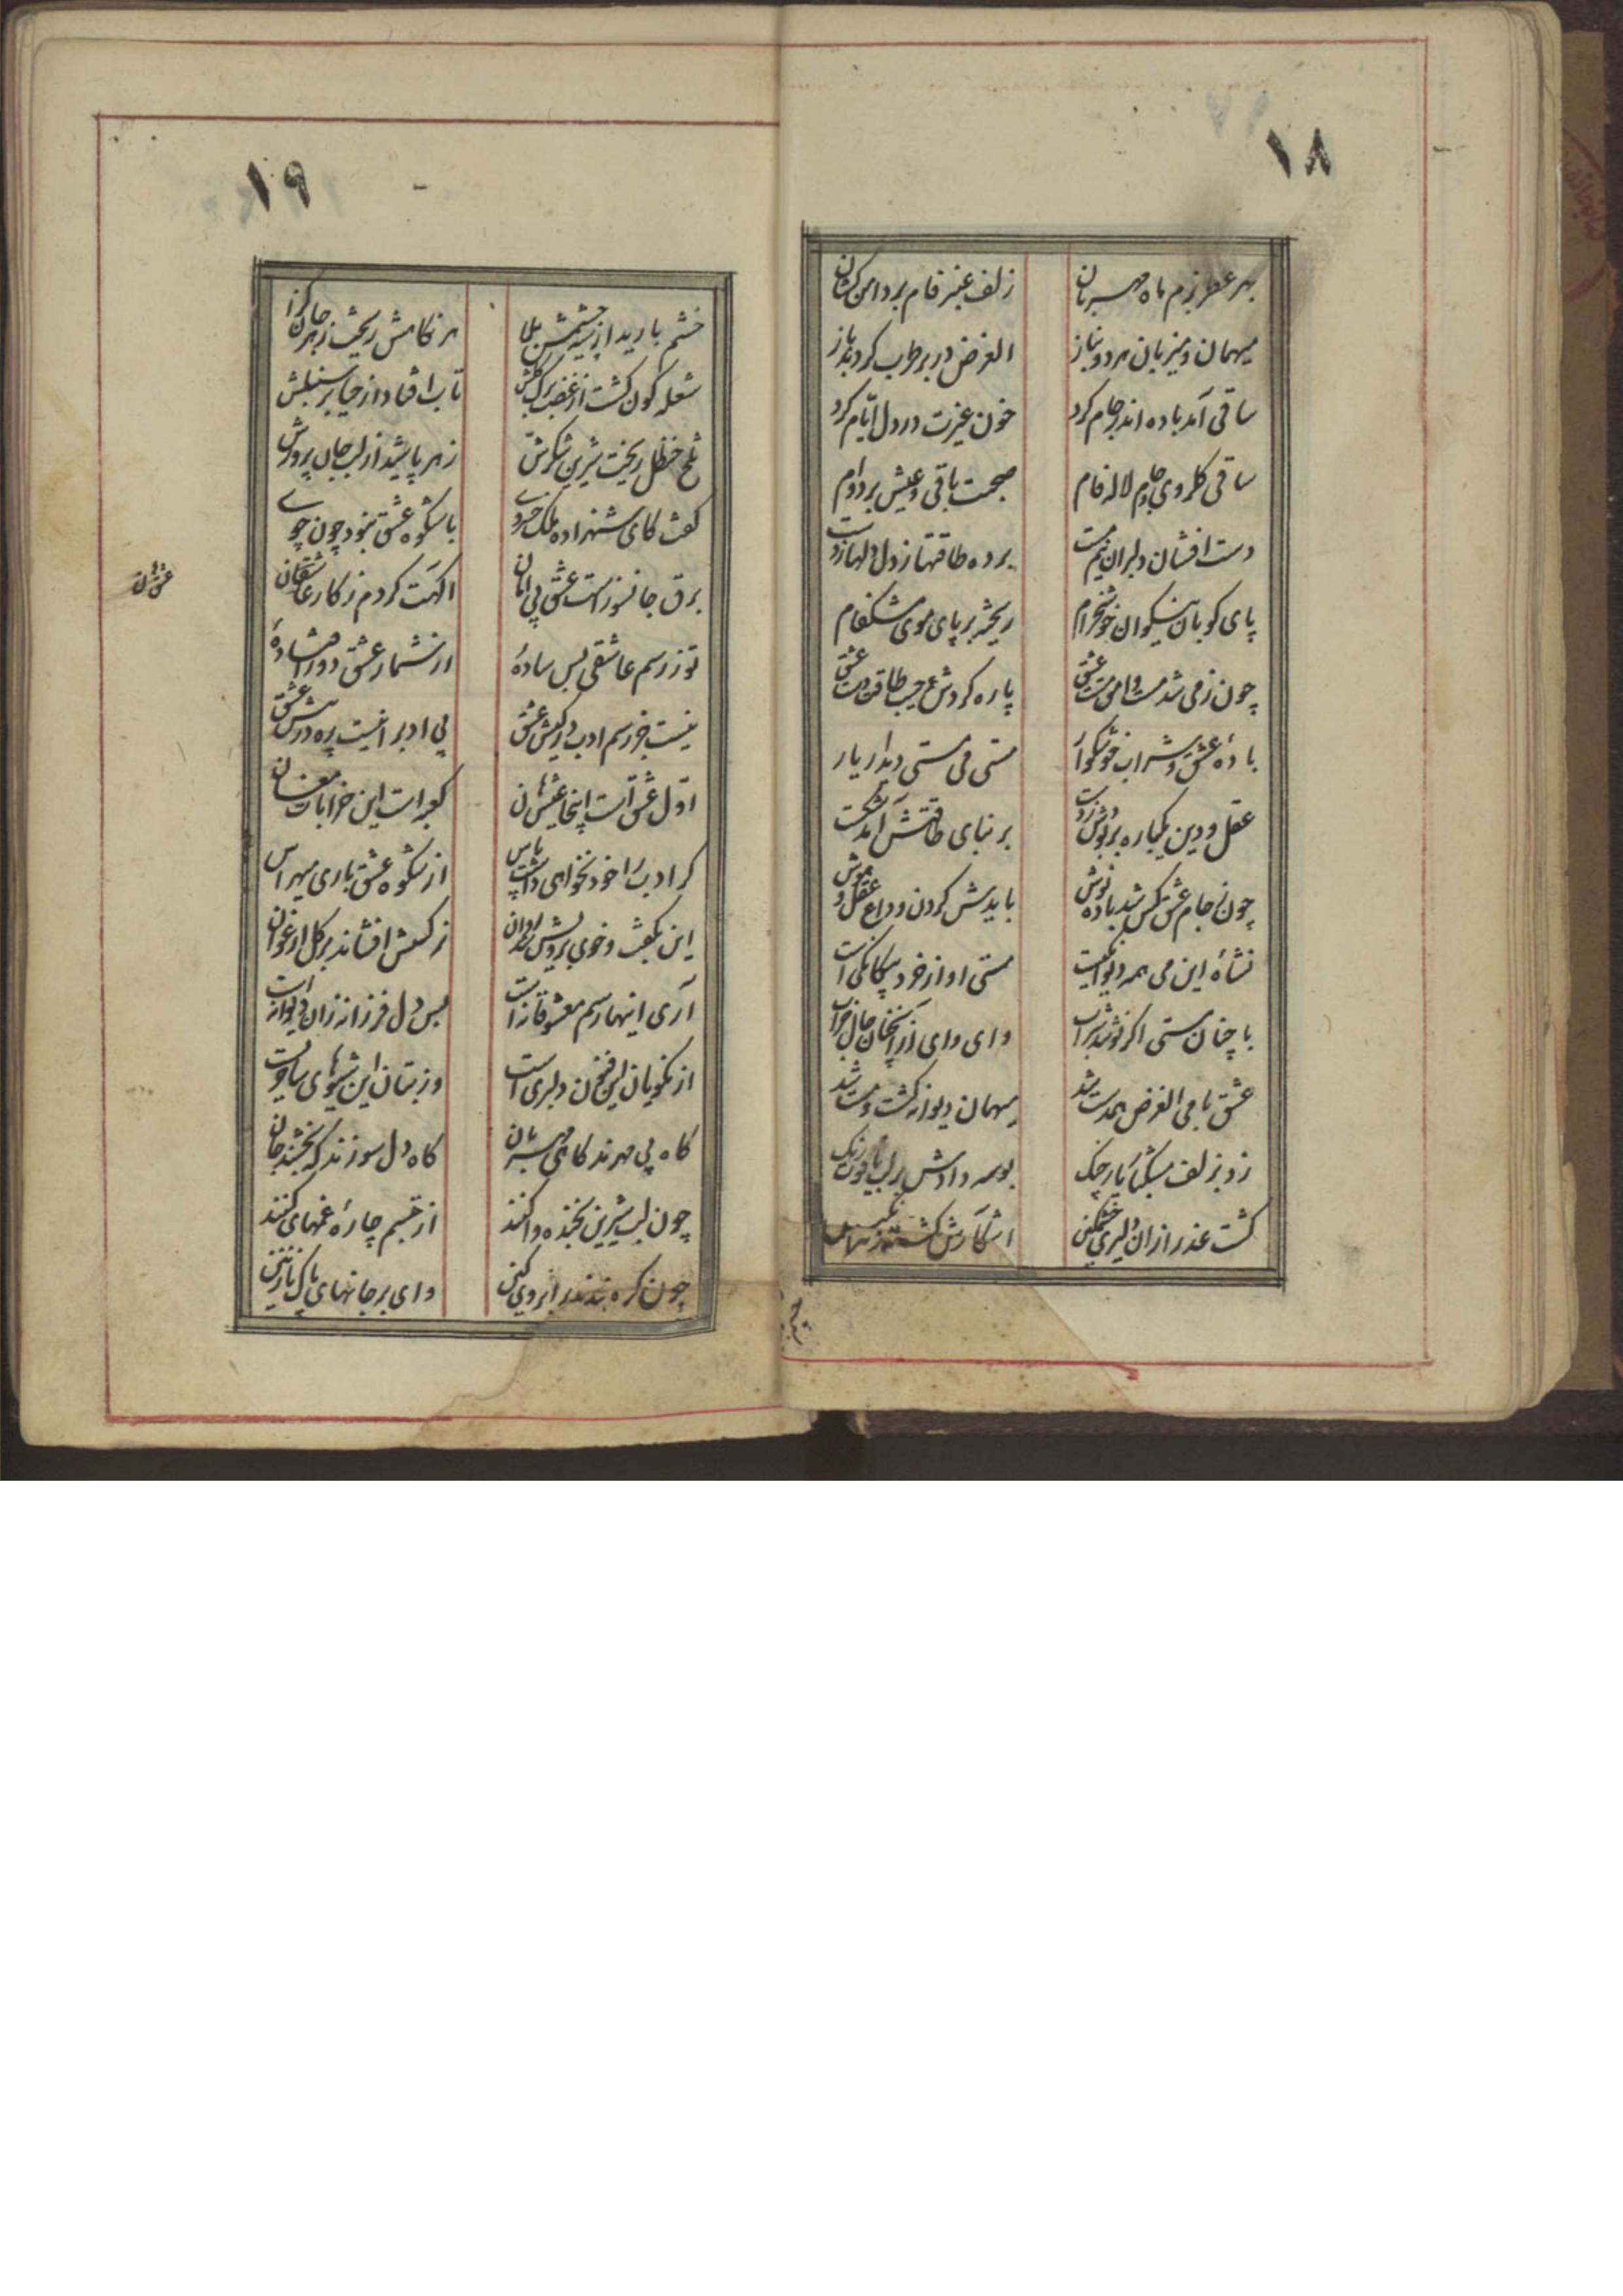 ۱۸
بهر عطر بزم ماه مهربان زلف عنبر فام بر دامن کشان
میهمان و میزبان هر دو بناز الغرض در بر طرب کردند باز
ساقی آمد باده اندر جام کرد خون غیرت در دل ایّام کرد
ساقی کلروی جام لاله فام صحبت باقی و عیش بر دوام
دست افشان دلبران نیم مست برده طاقتها ز دل دلها ز دست
پای کوبان نیکوان خوشخرام ریخته بر پای موی مشکفام
چون ز می شد مست وامق مست عشق پاره کردش جیب طاقت دست عشق
بادهٔ عشق و شراب خوشکوار مستی می مستی دیدار یار
عقل و دین یکباره بر دوشش ز دست بر بنای طاقتش آمد شکست
چون ز جام عشق کس شد باده نوش بایدش کردن وداع عقل و هوش
نشاهٔ این می همه دیوانکیست مستی او از خرد بیکانکی است
با چنان مستی اکر نوشد شراب وای وای از آنچنان حال خراب
عشق با می الغرض همدست شد میهمان دیوانه کشت و مست شد
زد بزلف مشکسای یار چنک بوسه دادش بر لب یاقوت رنک
کشت عذرا زان دلیری خشمکین
۱۹
خشم بارید از سیه چشمش بلا هر نکاهش ریخت زهر جان کزا
شعله کون کشت از غضب برک کلش تاب افتاد از حیا بر سنبلش
تلخ حنظل ریخت شیرین شکرش زهر پاشید از لب جان پرورش
کفت کای شهزاده ملک خسروے با شکوه عشق نبود چون چوے
برق جانسوز است عشق بی امان اکهت کردم ز کار عاشقان
تو ز رسم عاشقی بس سادهٔ از شمار عشق دور افتادهٔ
نیست جز رسم ادب در کیش عشق بی ادب را نیست ره در پیش عشق
اوّل عشق است اینجا عشق هان کعبه است این خرابات مغان
کر ادب را خود نخواهی داشت پاس از شکوه عشق باری میهراس
این بکفت و خوی برویش شد روان نرکسش افشاند بر کل ارغوان
آری اینها رسم معشوقانه است بس دل فرزانه زان دیوانه است
از نکویان این فن دلبری است وز بتان این شیوهای
کاه بی مهرند کاهی مهربان کاه دل سوزند که بخشند جان
چون لب شیرین بخنده وا کنند از تبسم چارهٔ غمهای کنند
چون کره بندند ابروی کین وای بر جانهای پاک نازنین